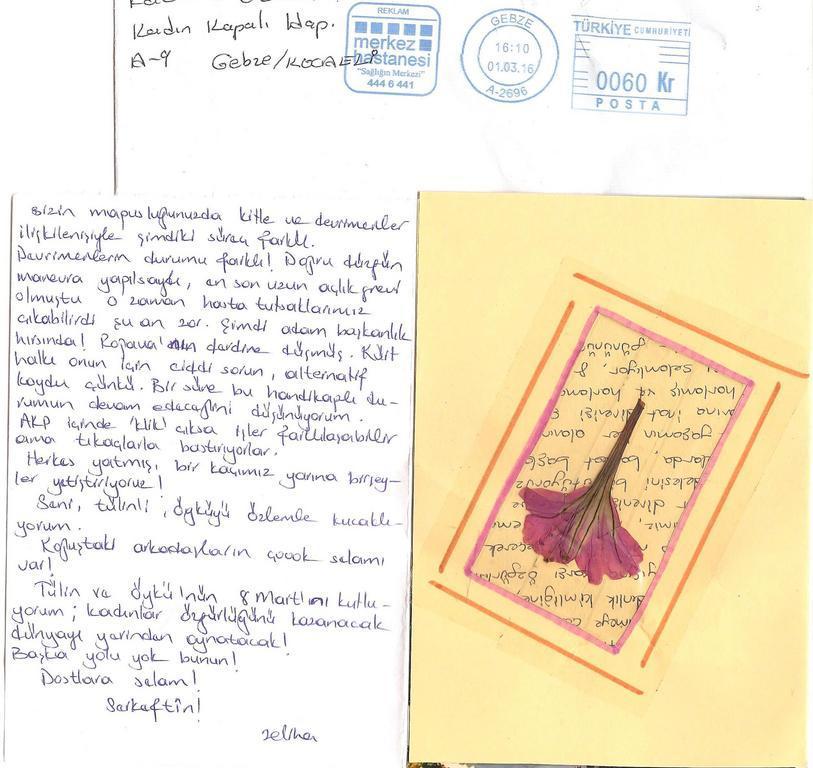 Kadın Kapalı Hap.
A-9 Gebze/KOCAELİ
REKLAM
merkez
hastanesi
"Sağlığın Merkezi"
444 6 441
GEBZE
16:10
01.03.16
A-2696
TÜRKİYE CUMHURİYETİ
0060 Kr
POSTA
sizin mapusluğunuzda kitle ve devrimciler
ilişkilenişiyle şimdiki süreç farklı.
Devrimcilerin durumu farklı! Doğru düzgün
manevra yapılsaydı, en son uzun açlık grevi
olmuştu o zaman hasta tutsaklarımız
çıkabilirdi şu an zor. Şimdi adam başkanlık
hırsında! Rojava'nın derdine düşmüş. Kürt
halkı onun için ciddi sorun, alternatif
koydu çünkü. Bir süre bu handikaplı du-
rumun devam edeceğini düşünüyorum.
AKP içinde klik çıksa işler farklılaşabilir
ama tıkaçlarla bastırıyorlar.
Herkes yatmış, bir kaçımız yarına birşey-
ler yetiştiriyoruz!
Seni, tülin'i, öykü'yü özlemle kucaklı-
yorum.
Koğuştaki arkadaşların çoook selamı
var!
Tülin ve öykü'nün 8 Mart'ını kutlu-
yorum; kadınlar özgürlüğünü kazanacak
dünyayı yerinden oynatacak!
Başka yolu yok bunun!
Dostlara selam!
Serkeftin!
Zeliha
gününü
selamlıyor, 8
harlamış ve harlama
inat direnişi
yaşamın her alanın
darda, barbat
delesini bütüyoruz
denlik kimliğine